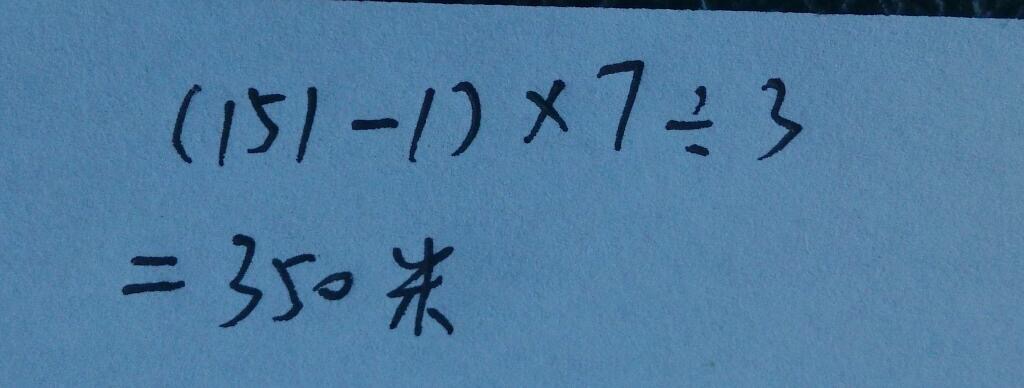 (151-1)×7÷3
=350米